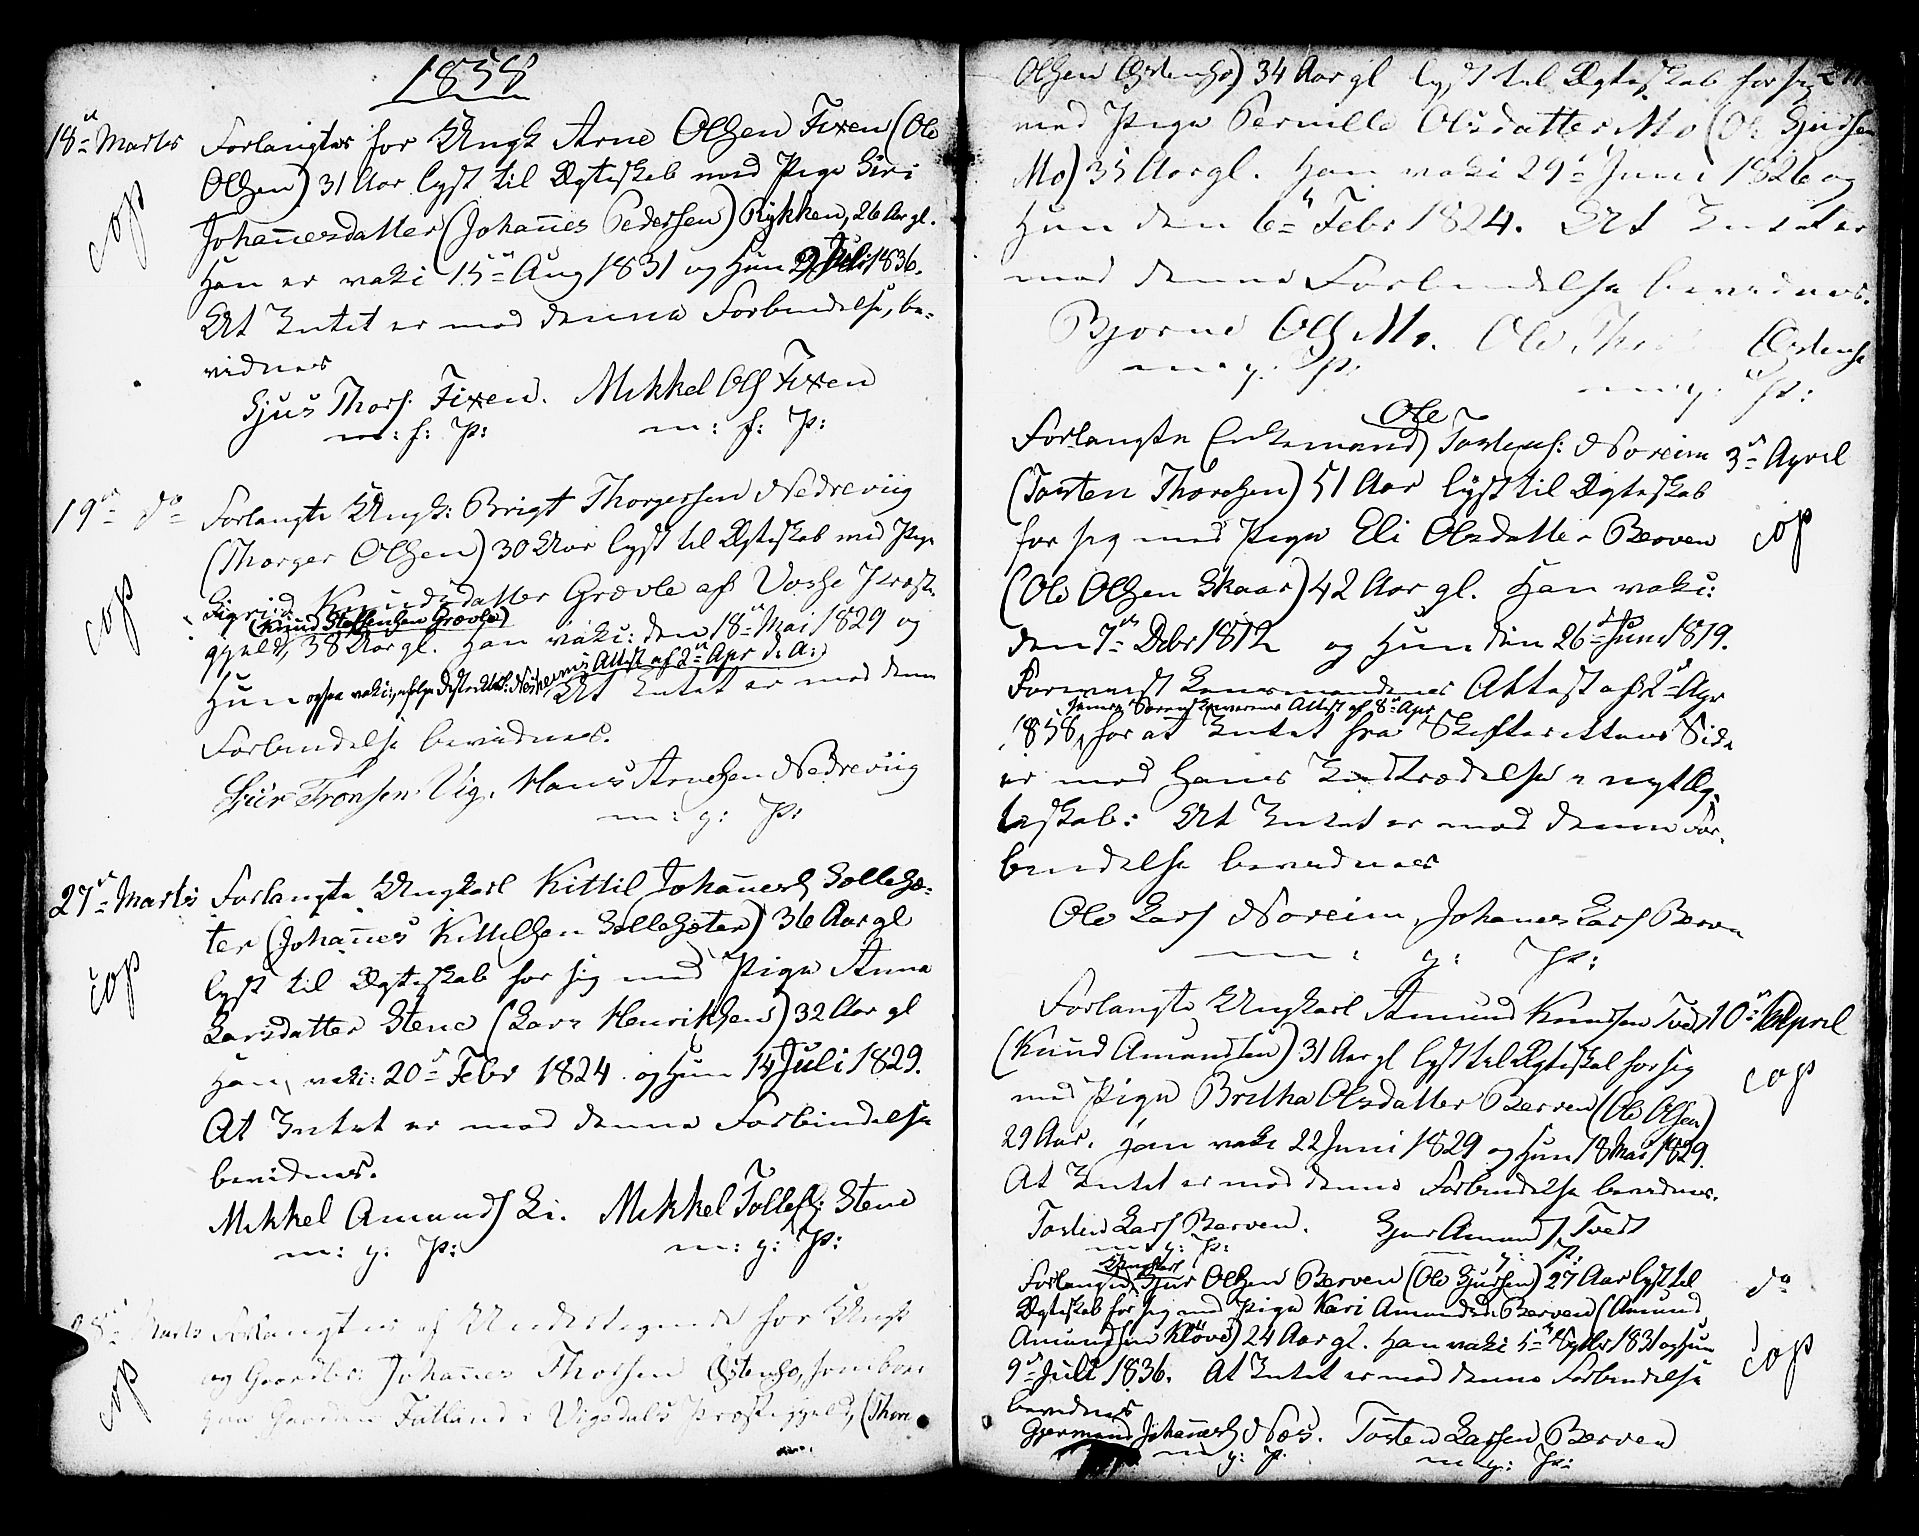 1858
18de Marts Forlangtes for Ungk Arne Olsen Fixen (Ole
Olsen) 31 Aar lyst til Ægteskab med Pige Siri
cop
Johannesdatter (Johannes Pedersen) Rykken, 26 Aar gl.
Han er vakc 15de Aug 1831 og Hun 9 Juli 1836.
At Intet er mod denne Forbindelse, be-
vidnes
Sjur Thors. Fixen. Mikkel Ols Fixen
m: f: P: m: f: P:
19de do Forlangte Ungk: Brigt Thorgersen Nedreviig
(Thorger Olsen) 30 Aar lyst til Ægteskab med Pige
cop
Sigrid Knudsdatter Grævle af Vosse Præste-
(Knud Steffensen Grævle)
gjeld, 38 Aar gl. Han vakc: den 18de Mai 1829 og
Hun ogsaa vakc:, Attest af 2de Apr d: A:) At Intet er mod denne
Forbindelse bevidnes.
Siur Tronsen Vig. Hans Arnesen Nedreviig
m: g: P:
27de Marts Forlangte Ungkarl Kittil Johannes Sollesæ-
ter (Johannes Kittilsen Sollesæter) 36 Aar gl
cop
lyst til Ægteskab for sig med Pige Anna
Larsdatter Stene (Lars Henriksen) 32 Aar gl
Han, vakc: 20de Febr 1824 og Hun 14 Juli 1829.
At Intet er mod denne Forbindelse
bevidnes.
Mikkel Amunds Li. Mikkel Tollefs: Stene
m: g: P: m: g: P:
28de Marts Forlangtes af Undertegnede for Ungk
og Gaardbr: Johannes Thorsen Østensø, som boer
cop
paa Gaarden Fatland i Vigedals Præstegjeld, (Thore
Olsen Østensø) 34 Aar gl lyst til Ægteskab for sig
med Pige Pernille Olsdatter Mo (Ole Sjursen
Mo) 35 Aar gl. Han vakc 29de Juni 1826 og
Hun den 6te Febr 1824. At Intet er
mod denne Forbindelse bevidnes.
Bjorne Ols Mo. Ole Østensø
m: g: P: m: g: P:
Ole
Forlangte Enkemand Torstens: Noreim 3de April
(Torsten Thoresen) 51 Aar lyst til Ægteskab
for sig med Pige Eli Olsdatter Berven cop
(Ole Olsen Skaar) 42 Aar gl. Han vakc:
den 7de Debr 1812 og Hun den 26de Juni 1819.
Foreviist Lensmandens Attest af 2de Apr
samt Sorenskriverens Attest af 8de Apr
1858, for at Intet fra Skifterettens Side
er mod hans Indtrædelse i nyt Æg-
teskab: At Intet er mod denne For-
bindelse bevidnes
Ole Lars Noreim, Johanes Lars Berven
m: g: P:
Forlangte Ungkarl Amund Knudsen Tvedt 10de April
(Knud Amundsen) 31 Aar gl lyst til Ægteskab for sig
cop
med Pige Britha Olsdatter Berven (Ole Olsen)
29 Aar. Han vakc 22 Juni 1829 og Hun 18 Mai 1829.
At Intet er mod denne Forbindelse bevidnes.
Torsten Lars Berven. Sjur Amunds. Tvedt
m: g: P: g: P:
Ungkarl
Forlangte Sjur Olsen Berven (Ole Sjursen) 27 Aar lyst til do
Ægteskab for sig med Pige Kari Amundsd: Berven (Amund
Amundsen Kløve) 24 Aar gl. Han vakc 5te 1831 og Hun
cop
9de Juli 1836. At Intet er mod denne Forbindelse
bevidnes
Gjermund Johannes Næs. Torsten Larsen Berven
m g: P. m g: P: